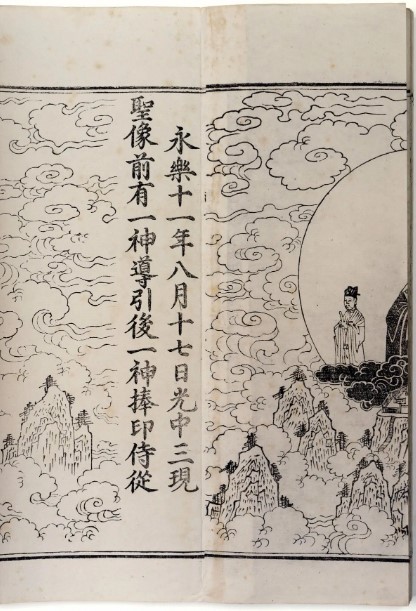 永樂十一年八月十七日光中三現
聖像前有一神導引後一神捧印侍從